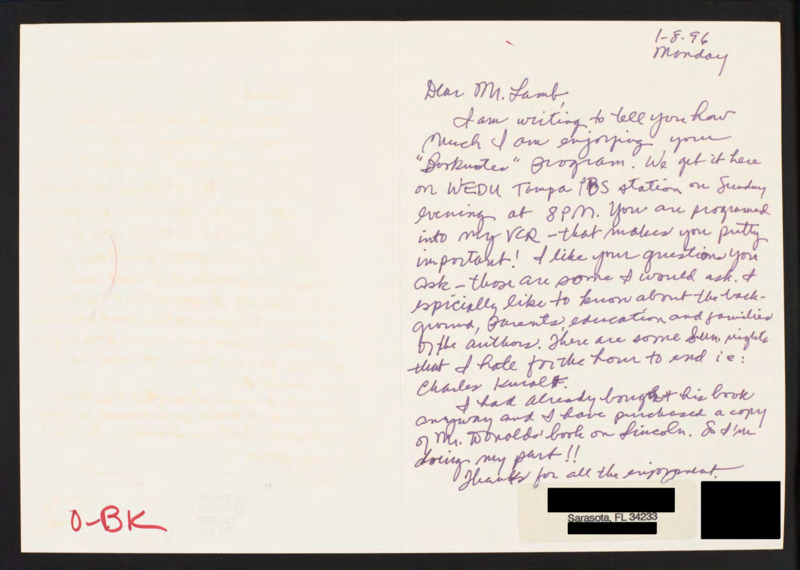 1-8-96
Monday
Dear Mr. Lamb,
I am writing to tell you how
much I am enjoying your
"Booknotes" program. We get it here
on WEDU Tampa PBS station on Sunday
evening at 8PM. You are programed
into my VCR - that makes you pretty
important! I like your question you
ask - those are some I would ask. I
espicially like to know about the back-
ground, parents, education and families
of the authors. There are some Sun. nights
that I hate for the hour to end ie:
Charles Kuralt.
I had already bought his book
anyway and I have purchased a copy
of Mr. Donalds' book on Lincoln. So I'm
doing my part!!
Thanks for all the enjoyment.
Sarasota, FL 34233
O-BK